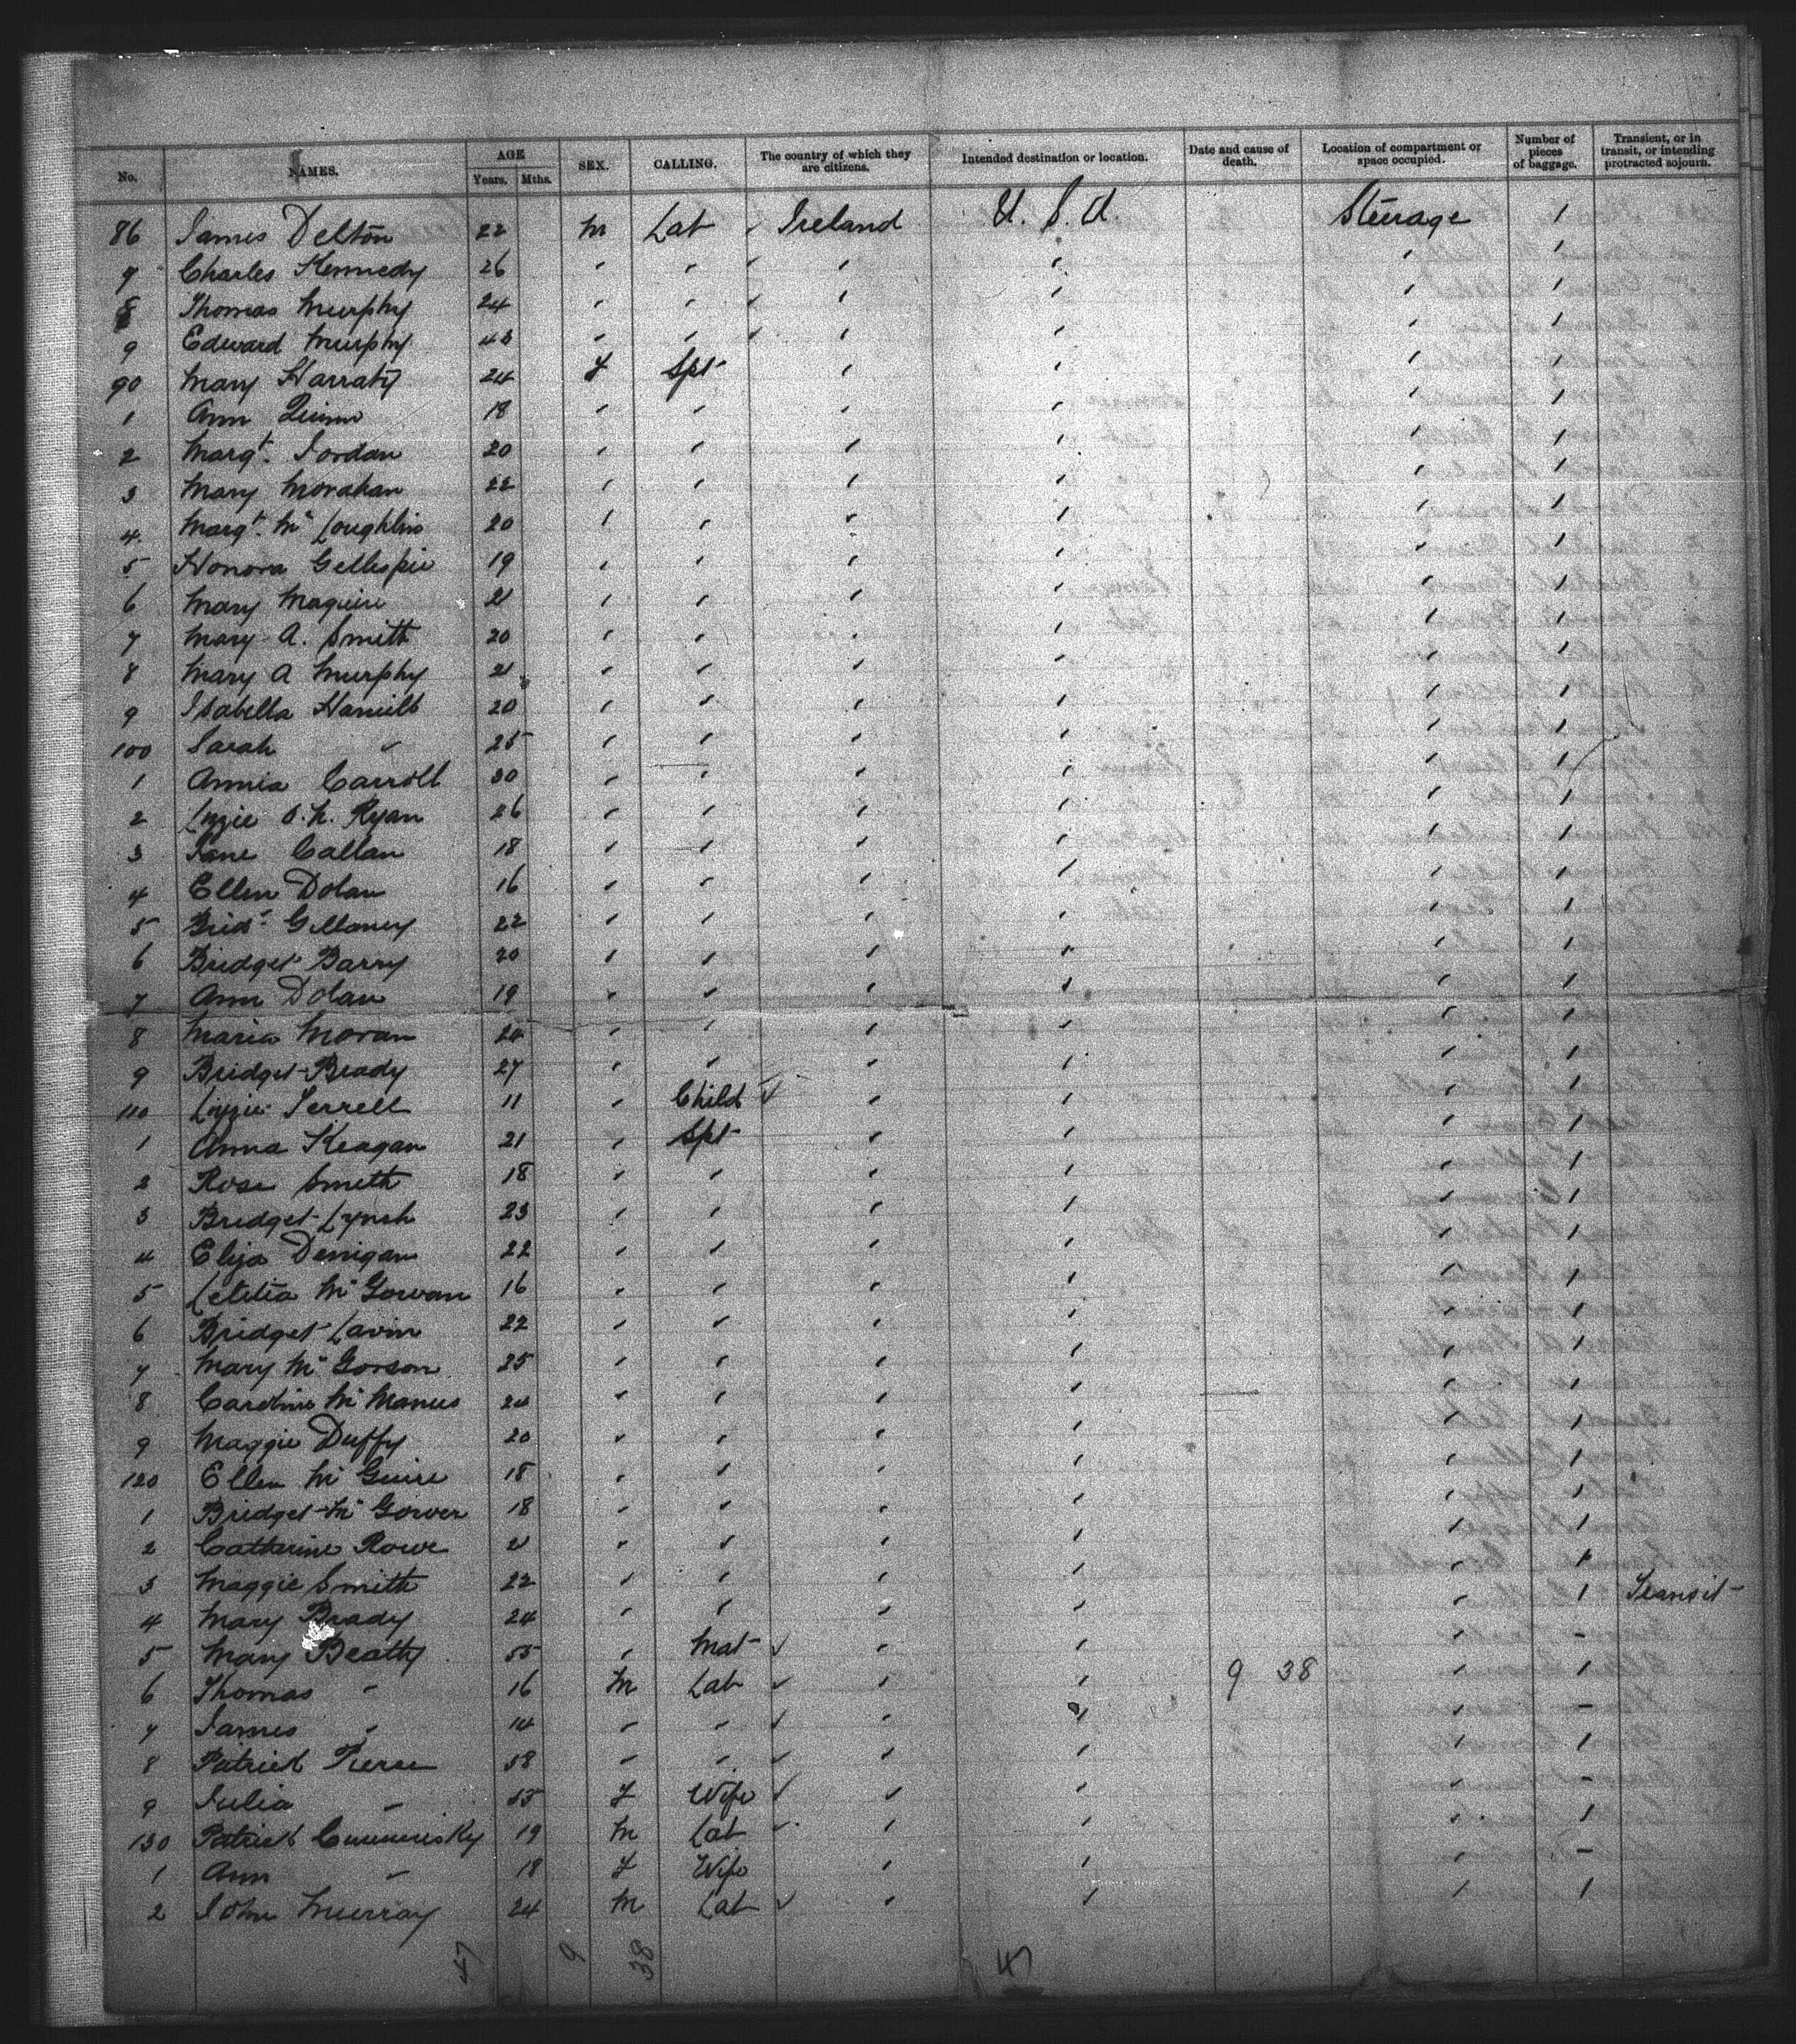 No. NAMES. AGE Years. Mths. SEX. CALLING. The country of which they are citizens. Intended destination or location. Date and cause of death. Location of compartment or space occupied. Number of pieces of baggage. Transient, or in transit, or intending protracted sojourn.
86 James Delton 22 m Lab Ireland U. S. A. Steerage 1
7 Charles Kennedy 26 " " " " " 1
8 Thomas Murphy 24 " " " " " 1
9 Edward Murphy 43 " " " " " 1
90 Mary Harraty 24 f Spt " " " 1
1 Ann Quinn 18 " " " " " 1
2 Margt. Jordan 20 " " " " " 1
3 Mary Morahan 22 " " " " " 1
4 Margt. Mc Loughlin 20 " " " " " 1
5 Honora Gellespie 19 " " " " " 1
6 Mary Maguire 21 " " " " " 1
7 Mary A. Smith 20 " " " " " 1
8 Mary A Murphy 21 " " " " " 1
9 Isabella Hamill 20 " " " " " 1
100 Sarah " 25 " " " " " 1
1 Annia Carroll 30 " " " " " 1
2 Lizzie O. H. Ryan 26 " " " " " 1
3 Jane Callan 18 " " " " " 1
4 Ellen Dolan 16 " " " " " 1
5 Brid. Gillaney 22 " " " " " 1
6 Bridget Barry 20 " " " " " 1
7 Ann Dolan 19 " " " " " 1
8 Maria Moran 24 " " " " " 1
9 Bridget Brady 27 " " " " " 1
110 Lizzie Terrell 11 " Child " " " 1
1 Anna Keagan 21 " Spt " " " 1
2 Rose Smith 18 " " " " " 1
3 Bridget Lynch 23 " " " " " 1
4 Eliza Denigan 22 " " " " " 1
5 Letitia Mc Gowan 16 " " " " " 1
6 Bridget Lavin 22 " " " " " 1
7 Mary Mc Gorson 25 " " " " " 1
8 Caroline Mc Manus 24 " " " " " 1
9 Maggie Duffy 20 " " " " " 1
120 Ellen Mc Guire 18 " " " " " 1
1 Bridget Mc Gower 18 " " " " " 1
2 Catharine Rowe 21 " " " " " 1
3 Maggie Smith 22 " " " " " 1
4 Mary Brady 24 " " " " " 1 Transit
5 Mary Beatty 55 " Mat " " " -
6 Thomas " 16 M Lab " " 9 38 " 1
7 James " 14 " " " " " -
8 Patrick Pierse 58 " " " " " 1
9 Julia " 55 f Wife " " " -
130 Patrick Cummisky 19 M Lab " " " 1
1 Ann " 18 f Wife " " " -
2 John Murray 24 M Lab " " " 1
47 9 38 47